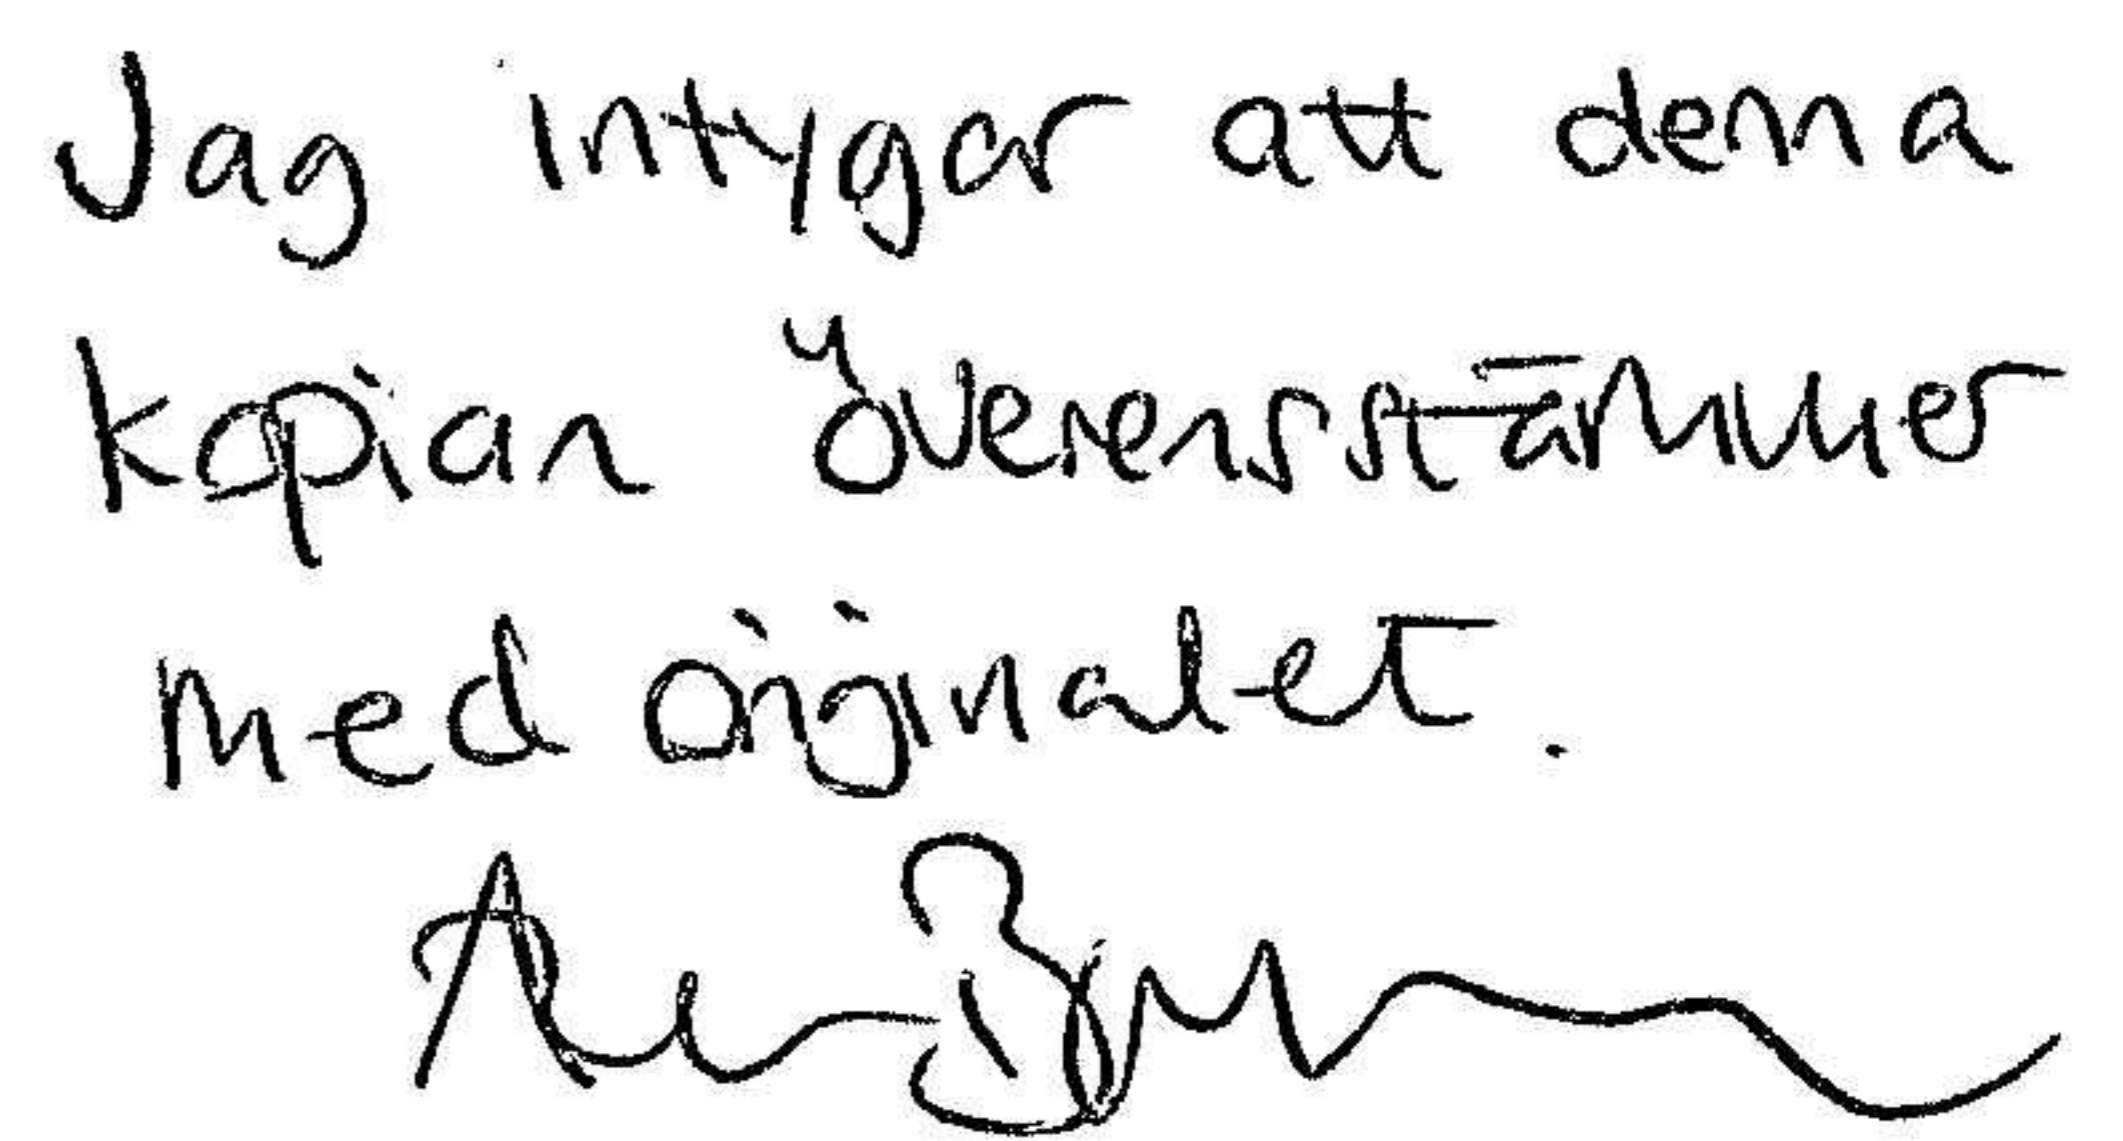 Jag intygar att denna
kopian överensstämmer
med originalet.